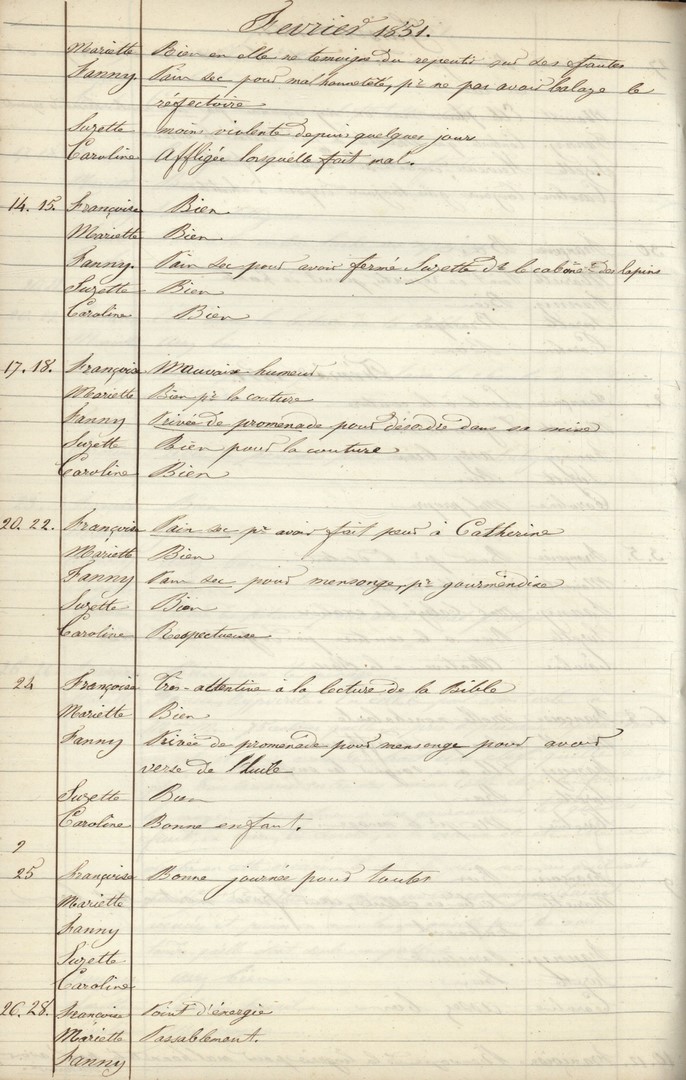 Fevrier 1851.
Mariette Rien en elle ne temoigne du repentir sur ses fautes
Fanny Pain sec pour malhonneteté, pr ne pas avoir balayé le
réfectoire
Suzette moins violente depuis quelques jours
Caroline Affligée lorsqu'elle fait mal.
14. 15. Françoise Bien
Mariette Bien
Fanny. Pain sec pour avoir fermé Suzette ds le cabane des lapins
Suzette Bien
Caroline Bien
17. 18. Françoise Mauvaise humeur
Mariette Bien pr la couture
Fanny Privée de promenade pour désordre dans sa mise
Suzette Bien pour la couture
Caroline Bien
20. 22. Françoise Pain sec pr avoir fait peur à Catherine
Mariette Bien
Fanny Pain sec pour mensonge, pr gourmandise
Suzette Bien
Caroline Respectueuse
24 Françoise Très-attentive à la lecture de la Bible
Mariette Bien
Fanny Privée de promenade pour mensonge pour avoir
verse de l'huile
Suzette Bien
Caroline Bonne enfant.
25 Françoise Bonne journée pour toutes
Mariette
Fanny
Suzette
Caroline
26. 28. Francoise Point d'énergie
Mariette Passablement.
Fanny